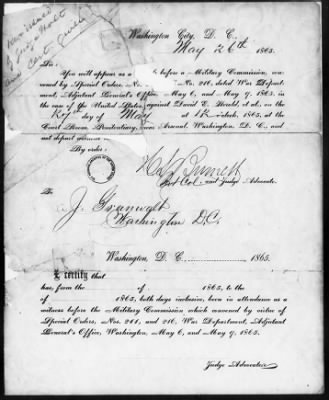 Washington City, D. C.
May 26th 1865.
Sir:
You will appear as a before a Military Commission, convened by Special Orders, No. dated War Department, Adjutant General's Office, May 6, and May 9, 1865, in
the case of the United States against David E. Herold, et al., on the
27th day of May 1865, at o'clock, 1865, at the
Court Room, Penitentiary, Arsenal, Washington, D. C., and
not depart
By order:
H L Burnett
Bvt Col. and Judge Advocate.
To
J. Granwalt
Washington D.C.
Washington, D. C. 1865.
I certify that
has, from the of 1865, to the
of 1865, both days inclusive, been in attendance as a
witness before the Military Commission which convened by virtue of
Special Orders, Nos. 211, and 216, War Department, Adjutant
General's Office, Washington, May 6, and May 9, 1865.
Judge Advocate.